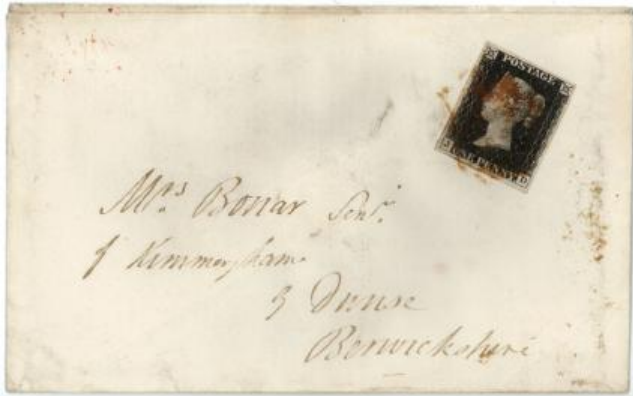 POSTAGE
J ONE PENNY D
Mrs. Bonar Senr.
of Kimmergham
by Dunse
Berwickshire